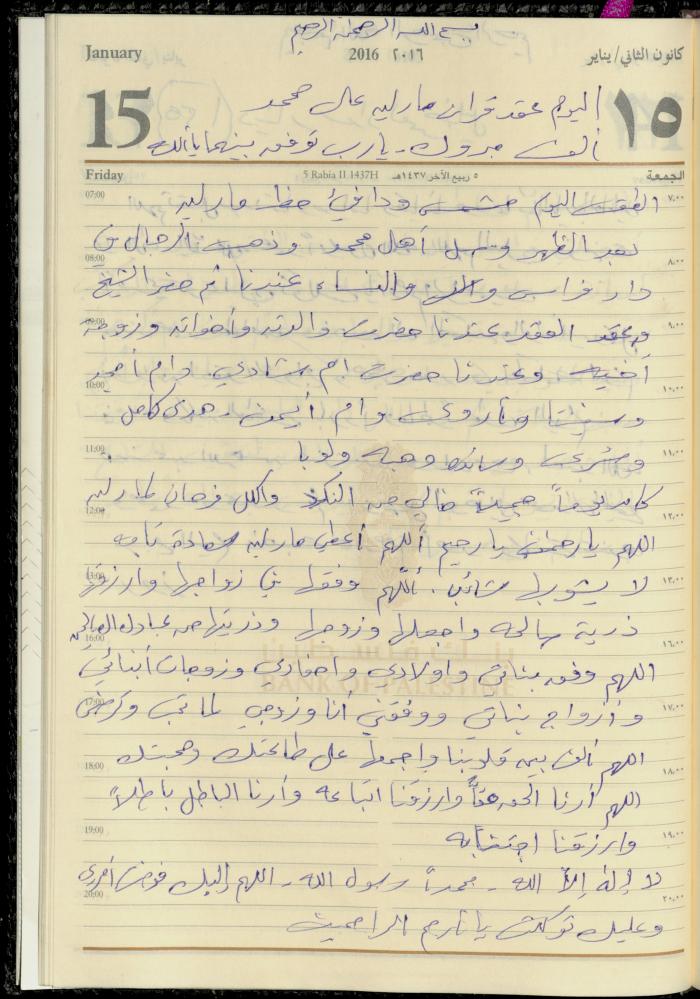 بسم الله الرحمن الرحيم
January 2016 ٢٠١٦ كانون الثاني/يناير
15 ١٥
اليوم عقد قران مارلين على محمد
ألف مبروك - يا رب توفق بينهما يا الله
Friday 5 Rabia II 1437H ٥ ربيع الآخر ١٤٣٧هـ الجمعة
07:00 الطقس اليوم مشمس ودافئ حظ مارلين ٧:٠٠
بعد الظهر وصل أهل محمد وذهب الرجال في
08:00 ٨:٠٠
دار فراس والنساء عندنا ثم حضر الشيخ
09:00 وعقد العقد عندنا حضرت والدته وأخواته وزوجة ٩:٠٠
أخيه وعندنا حضرت ام شادي وام أمجد
10:00 ١٠:٠٠
وأروى وام أيمن - هدى كامل
11:00 وبشرى وهبه ولوبا ١١:٠٠
كان يوماً جميلاً خالي من النكد والكل فرحان لمارلين
12:00 ١٢:٠٠
اللهم يا رحمن يا رحيم أللهم أعطي مارلين سعادة تامه
13:00 لا يشوبها شائب. أللهم وفقها في زواجها وارزقها ١٣:٠٠
ذرية صالحه واجعلها وزوجها وذريتها من عبادك الصالحين
16:00 ١٦:٠٠
بنك فلسطين
BANK OF PALESTINE
اللهم وفق بناتي واولادي واحفادي وزوجات أبنائي
17:00 وأزواج بناتي ووفقني أنا وزوجي لما تحب وترضى ١٧:٠٠
اللهم ألف بين قلوبنا واجمعها على طاعتك ومحبتك
18:00 ١٨:٠٠
اللهم أرنا الحق حقاً وارزقنا اتباعه وأرنا الباطل باطلاً
19:00 وارزقنا اجتنابه ١٩:٠٠
لا إله إلا الله - محمداً رسول الله - اللهم إليك فوضت أمري
20:00 ٢٠:٠٠
وعليك توكلت يا أرحم الراحمين